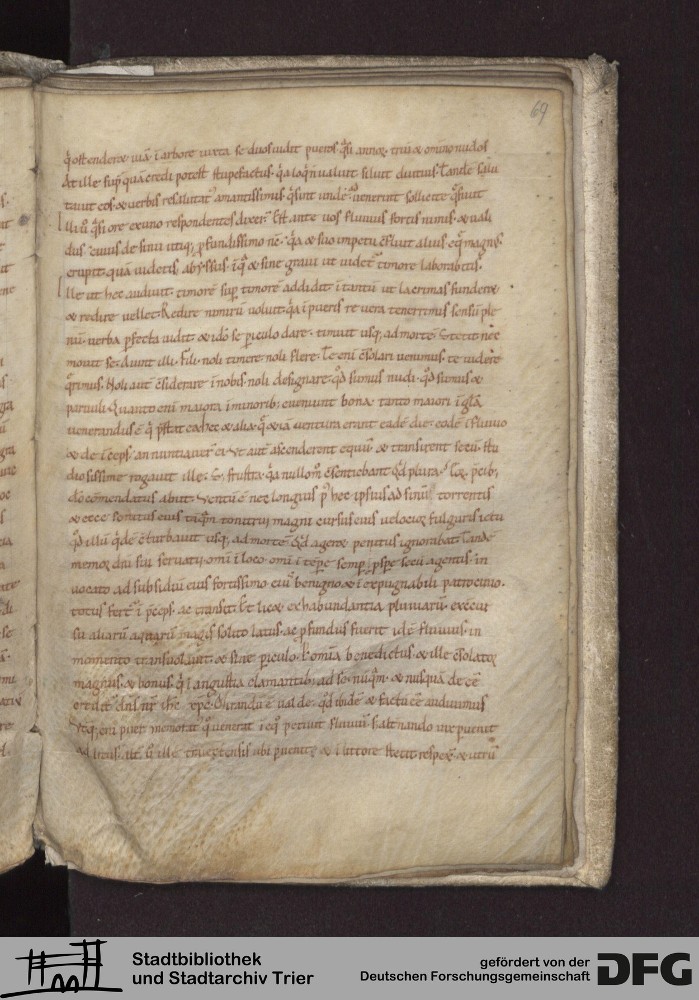 69
q̄ ostenderet uiā ī arbore iuxta se duos uidit pueros q̄si annoꝝ triū & omnino nudos
At ille sup̄ quā credi potest stupefactus q̄a loq̄ n̄ ualuit siluit diutius. Tandē salu
tauit eos & uerbis resalutat᷒ amantissimis q̄ sint unde uenerint sollicite q̄siuit
lli u᷒ q̄si ore ex uno respondentes dixer̄. Est ante uos fluuius fortis nimis & uali
dus cuius de sinu utiq; p̄fundissimo q̄a & suo impetu alius magnus
erupit. qua uidetis abyssus. & sine graui ut uidet᷒ timore laborabitis.
lle ut hec audiuit. timorē sup̄ timore addidit ī tantū ut lacrimas fundere
& redire uellet. Redire nimirū uoluit q̄a ī pueris re uera tenerrimis sensū ple
nū uerba p̄fecta uidit. & ido se p̄iculo dare timuit usq; ad mortē. Stetit nec
mouit se. Aiunt illi. Fili noli timere noli flere. Te eni c̄solari uenimus. te uidere
q̄rimus. Noli aut c̄siderare ī nobis. noli designare q̄d sumus nudi. q̄d sumus &
paruuli. Quanto eni maiora ī minorib; eueniunt bona. tanto maiori ī gl̄a
uenerandus ē q̄ p̄stat ea. hec & alia q̄ & ia uentura erant eadē die. eodē ī fluuio
& de ī ceps annuntiauer̄ ei. Vt aut ascenderent equū & transirent secū. stu
diosissime rogauit ille. S; frustra. q̄a nullom̄ c̄sentiebant q̄d p̄cib;
dō cōmendatus abiit. Ventū ē nec longius p᷒ hec ipsius ad sinū torrentis
& ecce sonitus eius taq̄m tonitrui magni cursus eius uelocior fulguris ictu
q̄d illū q̄de c̄turbauit usq; ad mortē. Quid ageret penitus ignorabat. Tande
memor dnī sui seruatii omī ī loco omī ī tēpe semp̄ p̄spe secū agentis. in
uocato ad subsidiū eius fortissimo ei᷒ benigno & ī expugnabili patrocinio.
totus fert᷒ ī p̄ceps ac transiit. Et licet ex habundantia pluuiarū excur
su aliarū aquarū magis solito latus ac p̄fundus fuerit idē fluuius. in
momento transuolauit & sine p̄iculo. Pomnia benedictus & ille c̄solator
magnus & bonus q̄ ī angustia clamantib; ad se nūq̄m & nusquā de eē
credit᷒ dn̄s nr̄ ihc xp̄c. Mirandū ē ualde q̄d ibide & factū eē audiuimus
eni puer memorat᷒ q̄ uenerat ī eq̄ petiuit fluuiū saltando uix puenit
ad litus. ut u᷒ ille traiectensis ubi puenit & ī littore stetit respexit & utrū
Stadtbibliothek
und Stadtarchiv Trier
gefördert von der
Deutschen Forschungsgemeinschaft
DFG